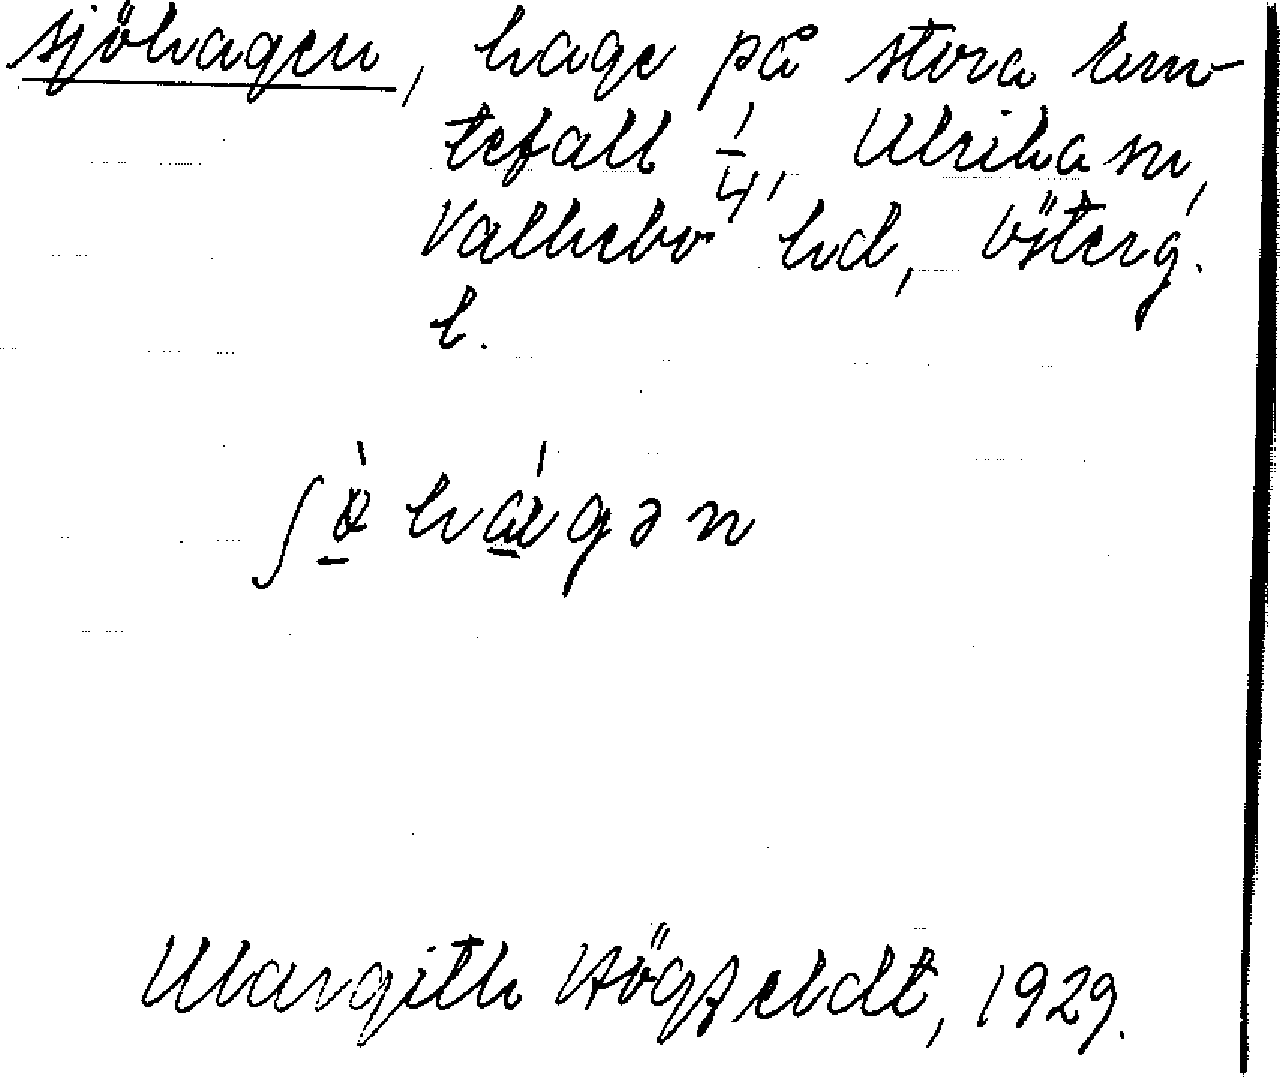 sjöhagen, hage på stora
tefall 1/4, Ulrika sn,
Valkebo hd, Österg.
l.
ʃø̀hágən
Margith Högfeldt, 1929.